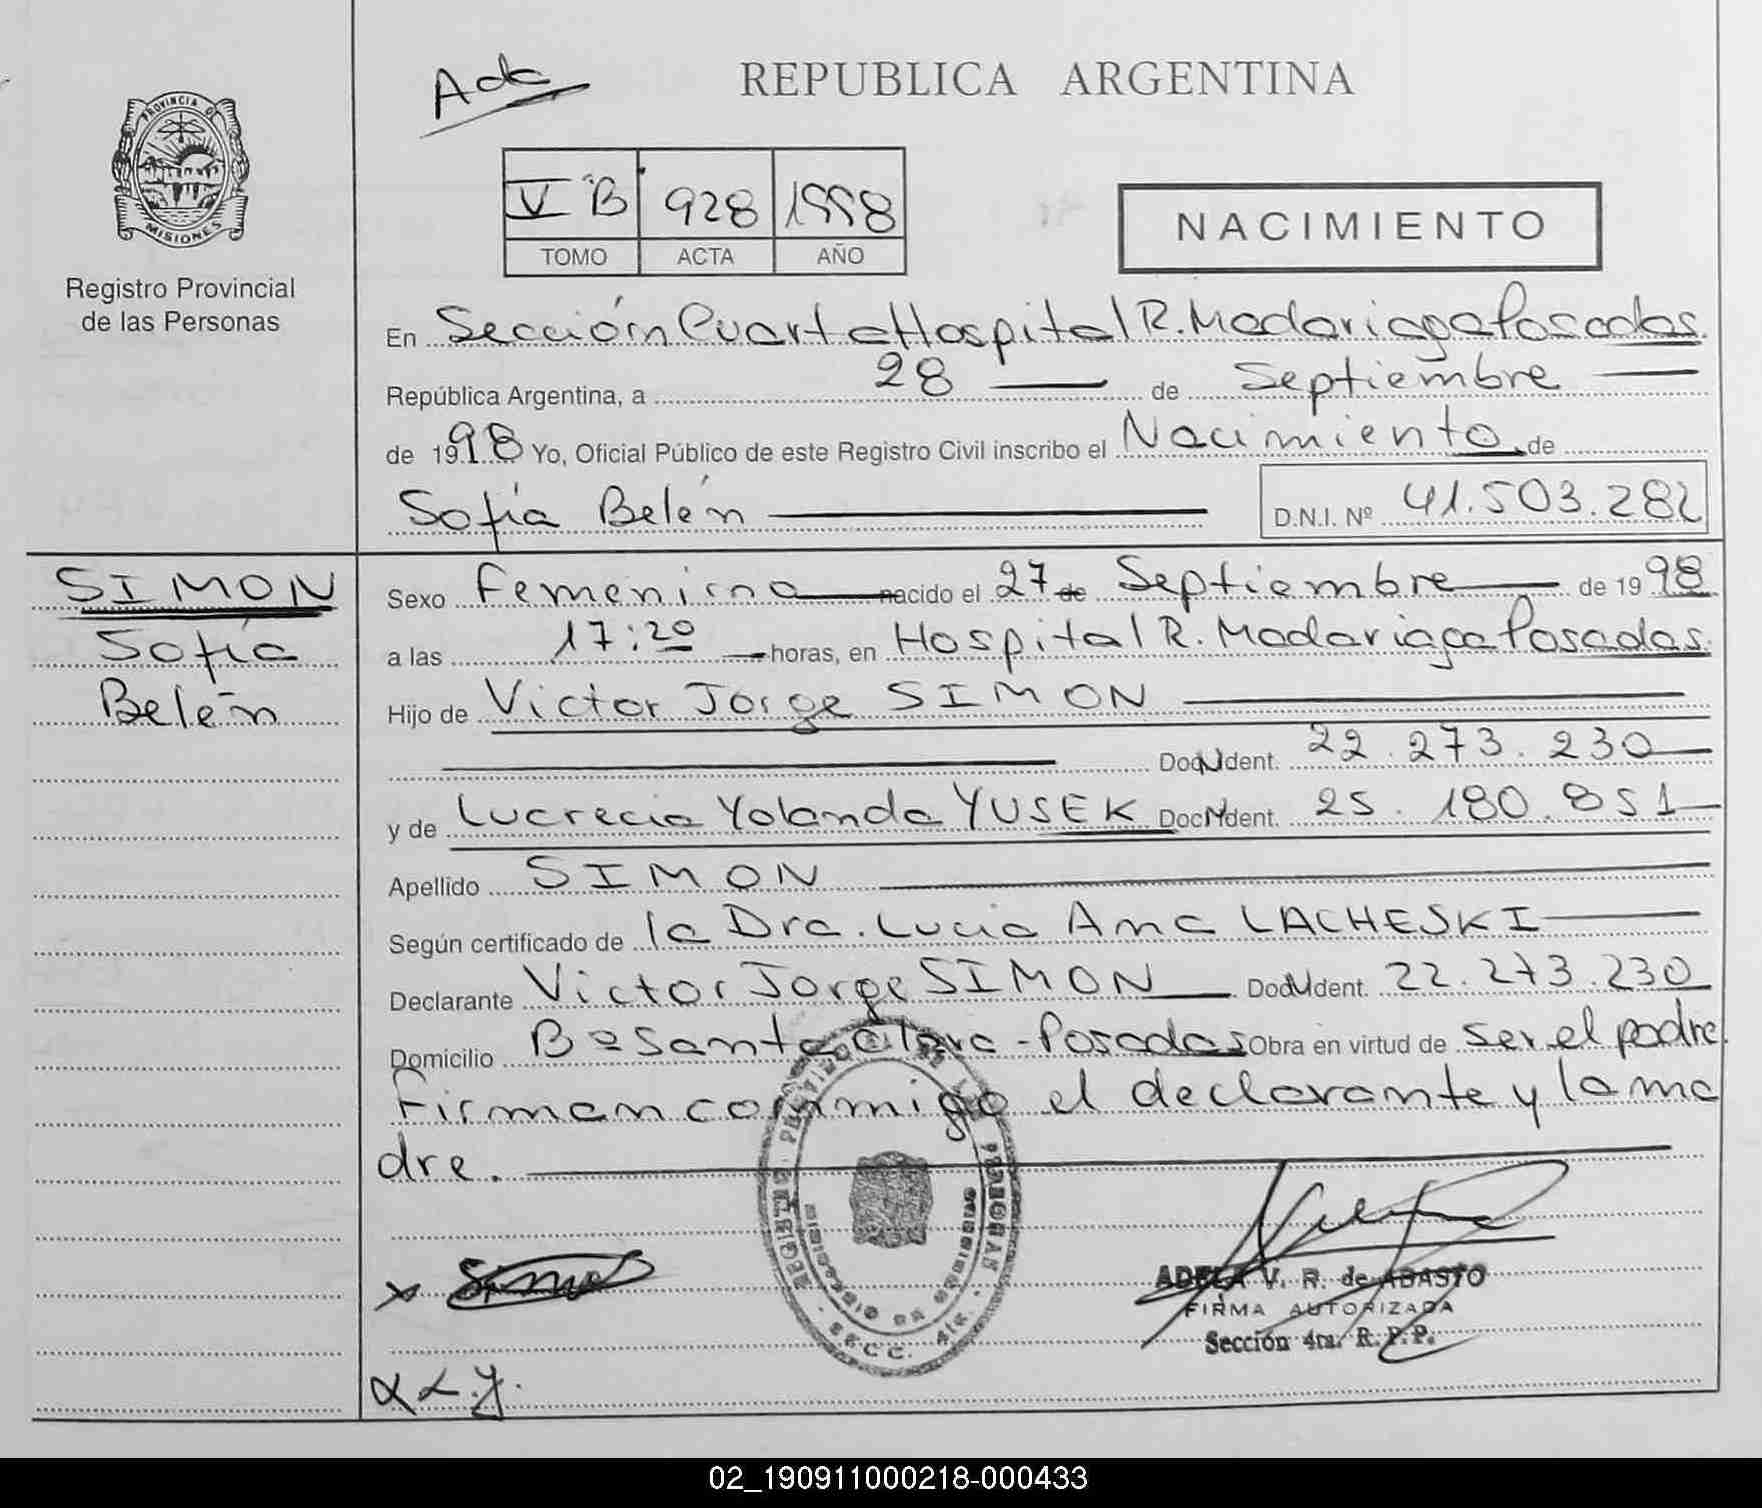 Ada
REPUBLICA ARGENTINA
PROVINCIA DE
MISIONES
Registro Provincial
de las Personas
V B 928 1998
TOMO ACTA AÑO
NACIMIENTO
En Sección Cuarta Hospital R. Madariaga Posadas.
República Argentina, a 28 de Septiembre
de 1998 Yo, Oficial Público de este Registro Civil inscribo el Nacimiento de
Sofía Belén D.N.I. Nº 41.503.282
SIMON
Sofía
Belén
Sexo Femenino nacido el 27 de Septiembre de 1998
a las 17:20 horas, en Hospital R. Madariaga Posadas.
Hijo de Victor Jorge SIMON
Doc. Ident. 22.273.230
y de Lucrecia Yolanda YUSEK Doc. Ident. 25.180.851
Apellido SIMON
Según certificado de la Dra. Lucia Ana LACHESKI
Declarante Victor Jorge SIMON Doc. Ident. 22.273.230
Domicilio Bº Santa Clara - Posadas Obra en virtud de ser el padre.
Firman conmigo el declarante y la ma
dre.
x Simon
ADELA V. R. de ABASTO
FIRMA AUTORIZADA
Sección 4ta. R. P. P.
x L.y.
02_190911000218-000433